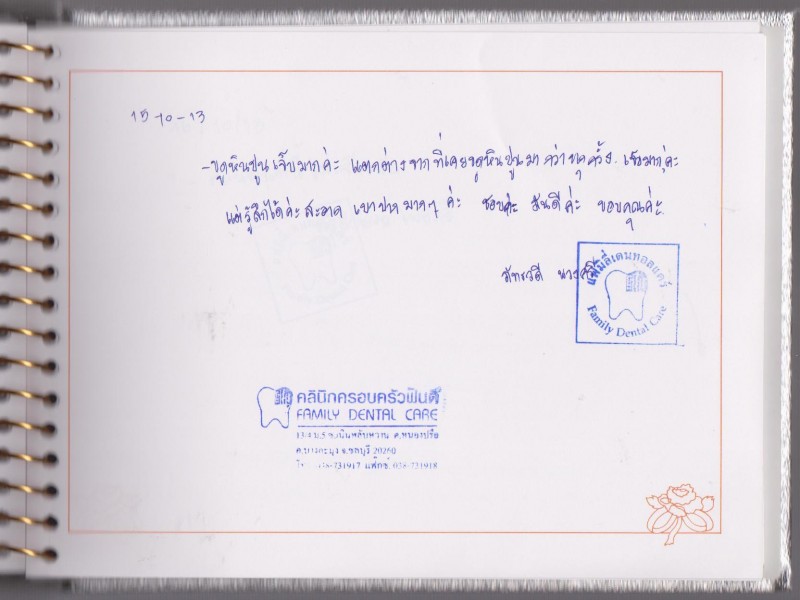 15-10-13
-ขูดหินปูน เจ็บมากค่ะ แตกต่างจาก ที่เคยขูดหินปูนมา กว่าทุกครั้ง. เจ็บมากๆค่ะ
แต่ รู้สึกได้ค่ะ สะอาด เบาปากมากๆ ค่ะ ชอบค่ะ มันดีค่ะ ขอบคุณค่ะ
แฟมิลี่เดนทอลแคร์
Family Dental Care
คลินิกครอบครัวฟันดี
FAMILY DENTAL CARE
ม.5 ถ.เนินพลับหวาน ต.หนองปรือ
อ.บางละมุง จ.ชลบุรี 20260
038-731917 แฟ็กซ์. 038-731918